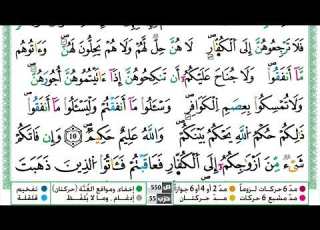 فَلَا تَرْجِعُوهُنَّ إِلَى ٱلْكُفَّارِ ۖ لَا هُنَّ حِلٌّ لَّهُمْ وَلَا هُمْ يَحِلُّونَ لَهُنَّ ۖ وَءَاتُوهُم
مَّآ أَنفَقُوا۟ ۚ وَلَا جُنَاحَ عَلَيْكُمْ أَن تَنكِحُوهُنَّ إِذَآ ءَاتَيْتُمُوهُنَّ أُجُورَهُنَّ ۚ
وَلَا تُمْسِكُوا۟ بِعِصَمِ ٱلْكَوَافِرِ وَسْـَٔلُوا۟ مَآ أَنفَقْتُمْ وَلْيَسْـَٔلُوا۟ مَآ أَنفَقُوا۟ ۚ
ذَٰلِكُمْ حُكْمُ ٱللَّهِ ۖ يَحْكُمُ بَيْنَكُمْ ۚ وَٱللَّهُ عَلِيمٌ حَكِيمٌ ۝10 وَإِن فَاتَكُمْ
شَىْءٌ مِّنْ أَزْوَٰجِكُمْ إِلَى ٱلْكُفَّارِ فَعَاقَبْتُمْ فَـَٔاتُوا۟ ٱلَّذِينَ ذَهَبَتْ
مدّ 6 حركات لزوماً مدّ 2 أو 4 أو 6 جوازاً 550 إخفاء، ومواقع الغُنَّة (حركتان) تفخيم
مدّ مشبع 6 حركات مدّ حركتان حزب 55 إدغام، وما لا يُلفَظ قلقلة